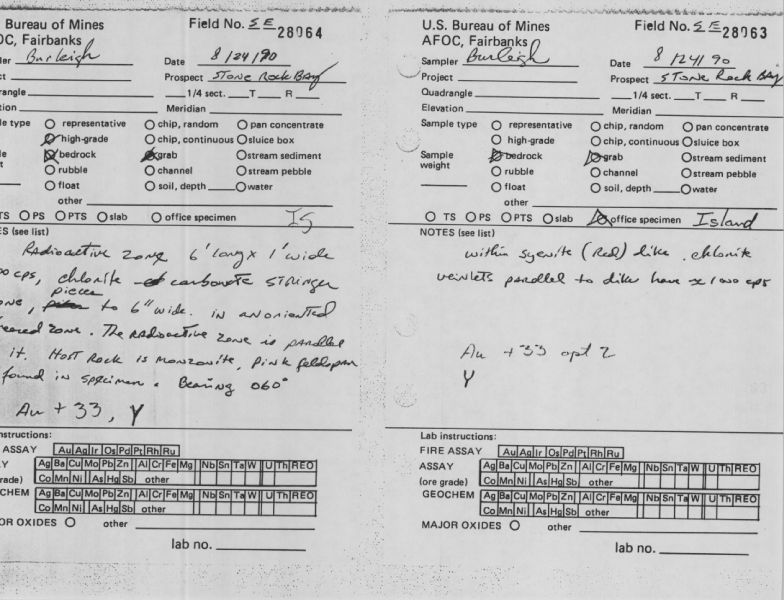 U.S. Bureau of Mines
AFOC, Fairbanks
Field No. SE 28064
Burleigh
Date 8/24/90
Prospect Stone Rock Bay
1/4 sect. T R
Meridian
representative chip, random pan concentrate
high-grade chip, continuous sluice box
bedrock grab stream sediment
rubble channel stream pebble
float soil, depth water
other
TS PS PTS slab office specimen Is
(see list)
Radioactive zone 6' long x 1' wide
cps, chlorite carbonate stringer
piece
to 6" wide. in an oriented
zone. The radioactive zone is parallel
it. Host Rock is monzonite, pink feldspar
found in specimen. Bearing 060°
Au + 33, Y
instructions:
ASSAY Au Ag Ir Os Pd Pt Rh Ru
Ag Ba Cu Mo Pb Zn Al Cr Fe Mg Nb Sn Ta W U Th REO
Co Mn Ni As Hg Sb other
Ag Ba Cu Mo Pb Zn Al Cr Fe Mg Nb Sn Ta W U Th REO
Co Mn Ni As Hg Sb other
OR OXIDES other
lab no.
U.S. Bureau of Mines
AFOC, Fairbanks
Field No. SE 28063
Sampler Burleigh
Date 8/24/90
Project
Prospect Stone Rock Bay
Quadrangle 1/4 sect. T R
Elevation Meridian
Sample type representative chip, random pan concentrate
high-grade chip, continuous sluice box
Sample weight bedrock grab stream sediment
rubble channel stream pebble
float soil, depth water
other
TS PS PTS slab office specimen Island
NOTES (see list)
within syenite (Red) dike. chlorite
veinlets parallel to dike have ≈ 1000 cps
Au + 33 opt 2
Y
Lab instructions:
FIRE ASSAY Au Ag Ir Os Pd Pt Rh Ru
ASSAY Ag Ba Cu Mo Pb Zn Al Cr Fe Mg Nb Sn Ta W U Th REO
(ore grade) Co Mn Ni As Hg Sb other
GEOCHEM Ag Ba Cu Mo Pb Zn Al Cr Fe Mg Nb Sn Ta W U Th REO
Co Mn Ni As Hg Sb other
MAJOR OXIDES other
lab no.